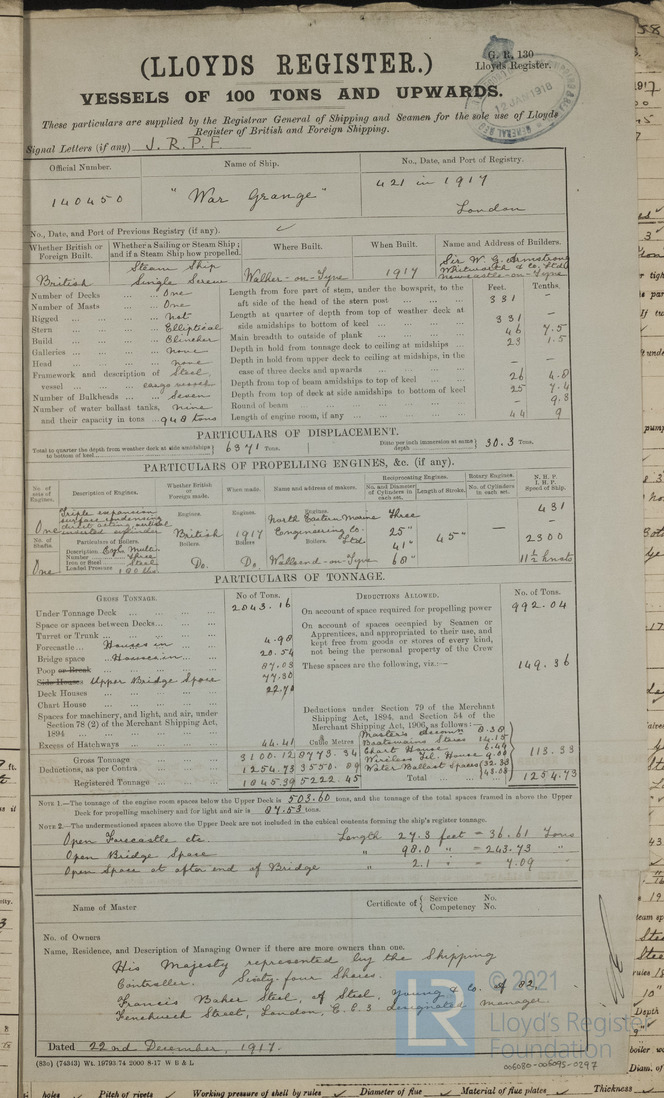 (LLOYDS REGISTER.)
G. R. 130
Lloyds Register.
VESSELS OF 100 TONS AND UPWARDS.
12 JAN 1918
These particulars are supplied by the Registrar General of Shipping and Seamen for the sole use of Lloyds
Register of British and Foreign Shipping.
Signal Letters (if any) J. R. P. F.
Official Number. Name of Ship. No., Date, and Port of Registry.
140450 "War Grange" 421 in 1917
London
No., Date, and Port of Previous Registry (if any).
Whether British or Foreign Built. Whether a Sailing or Steam Ship; and if a Steam Ship how propelled. Where Built. When Built. Name and Address of Builders.
British Steam Ship Single Screw Walker-on-Tyne 1917 Sir W. G. Armstrong Whitworth & Co. Ltd. Newcastle-on-Tyne
Feet. Tenths.
Number of Decks One
Number of Masts One
Rigged Not
Stern Elliptical
Build Clincher
Galleries none
Head none
Framework and description of vessel Steel, cargo vessel
Number of Bulkheads Seven
Number of water ballast tanks, and their capacity in tons Nine 948 tons
Length from fore part of stem, under the bowsprit, to the aft side of the head of the stern post 331 –
Length at quarter of depth from top of weather deck at side amidships to bottom of keel 331 –
Main breadth to outside of plank 46 7.5
Depth in hold from tonnage deck to ceiling at midships 23 1.5
Depth in hold from upper deck to ceiling at midships, in the case of three decks and upwards – –
Depth from top of beam amidships to top of keel 26 4.8
Depth from top of deck at side amidships to bottom of keel 25 7.4
Round of beam – 9.8
Length of engine room, if any 44 9
PARTICULARS OF DISPLACEMENT.
Total to quarter the depth from weather deck at side amidships to bottom of keel 6371 Tons. Ditto per inch immersion at same depth 30.3 Tons.
PARTICULARS OF PROPELLING ENGINES, &c. (if any).
No. of sets of Engines. Description of Engines. Whether British or Foreign made. When made. Name and address of makers. Reciprocating Engines. No. and Diameter of Cylinders in each set. Length of Stroke. Rotary Engines. No. of Cylinders in each set. N. H. P. I. H. P. Speed of Ship.
One Triple expansion surface condensing direct acting vertical inverted cylinder
Engines. British Engines. 1917 Engines. North Eastern Marine Engineering Co. Ltd Three 25" 41" 68" 45" – 431
2300
11½ knots
No. of Shafts. One
Particulars of Boilers.
Description Cyl. Multi.
Number Three
Iron or Steel Steel
Loaded Pressure 180 lbs
Boilers. Do. Boilers Do. Boilers. Wallsend-on-Tyne
PARTICULARS OF TONNAGE.
GROSS TONNAGE. No of Tons. DEDUCTIONS ALLOWED. No. of Tons.
Under Tonnage Deck 2043.16
Space or spaces between Decks
Turret or Trunk
Forecastle Houses in 4.98
Bridge space Houses in 20.54
Poop or Break 87.08
Side Houses Upper Bridge Space 77.30
Deck Houses
Chart House
Spaces for machinery, and light, and air, under Section 78 (2) of the Merchant Shipping Act, 1894
Excess of Hatchways 44.41
Cubic Metres
Gross Tonnage 3100.12 8773.34
Deductions, as per Contra 1254.73 3550.89
Registered Tonnage 1845.39 5222.45
On account of space required for propelling power 992.04
On account of spaces occupied by Seamen or Apprentices, and appropriated to their use, and kept free from goods or stores of every kind, not being the personal property of the Crew
These spaces are the following, viz.:— 149.36
Deductions under Section 79 of the Merchant Shipping Act, 1894, and Section 54 of the Merchant Shipping Act, 1906, as follows:—
Master's Accomn 8.38
Boatswains Stores 14.15
Chart House 6.49
Wireless Tel. House
Water Ballast Spaces 113.33
Total 1254.73
NOTE 1.—The tonnage of the engine room spaces below the Upper Deck is 503.60 tons, and the tonnage of the total spaces framed in above the Upper Deck for propelling machinery and for light and air is 87.53 tons.
NOTE 2.—The undermentioned spaces above the Upper Deck are not included in the cubical contents forming the ship's register tonnage.
Open Forecastle etc. Length 27.3 feet = 36.61 Tons
Open Bridge Space " 98.0 " = 243.73 "
Open Space at after end of Bridge " 2.1 " = 7.09 "
Name of Master Certificate of Service No.
Competency No.
No. of Owners
Name, Residence, and Description of Managing Owner if there are more owners than one.
His Majesty represented by the Shipping
Controller. Sixty-four Shares.
Francis Baker Steel, of Steel, Young & Co. of 82,
Fenchurch Street, London, E.C.3 designated manager
Dated 22nd December, 1917.
(830) (74343) Wt. 19793/74 2000 8-17 W B & L
LR
© 2021
Lloyd's Register
Foundation
005080-005095-0297
holes Pitch of rivets Working pressure of shell by rules Diameter of flue Material of flue plates Thickness